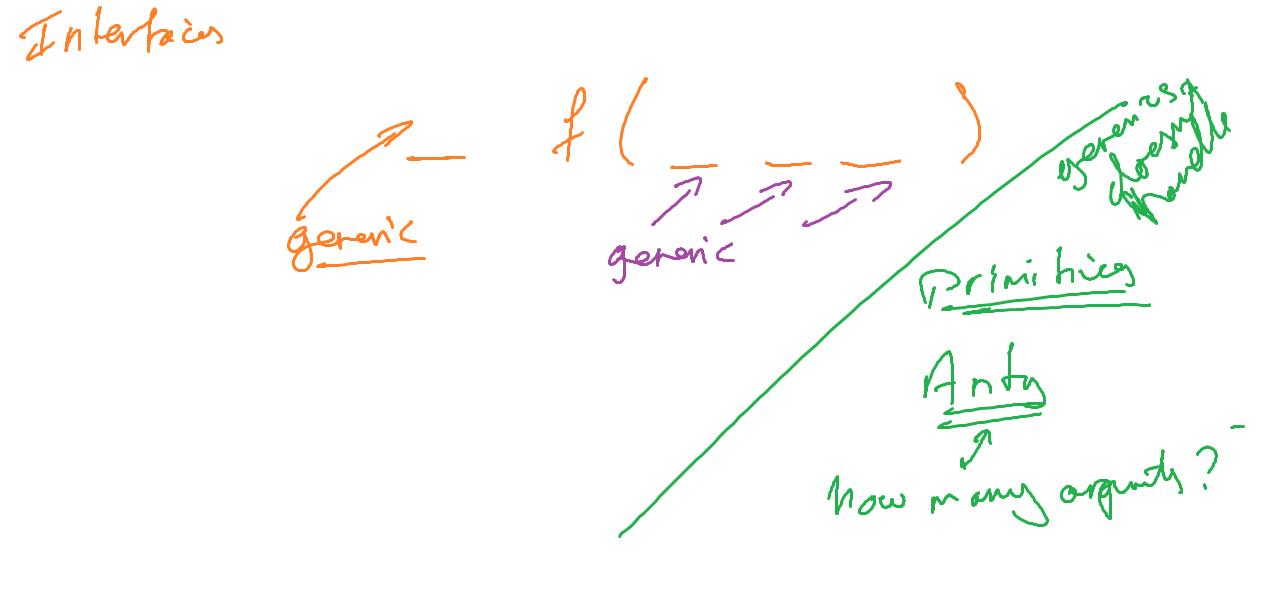 Interfaces
f ( _ _ _ )
generic
generic
generics
doesn't
handle
Primitives
Arity
How many arguments?